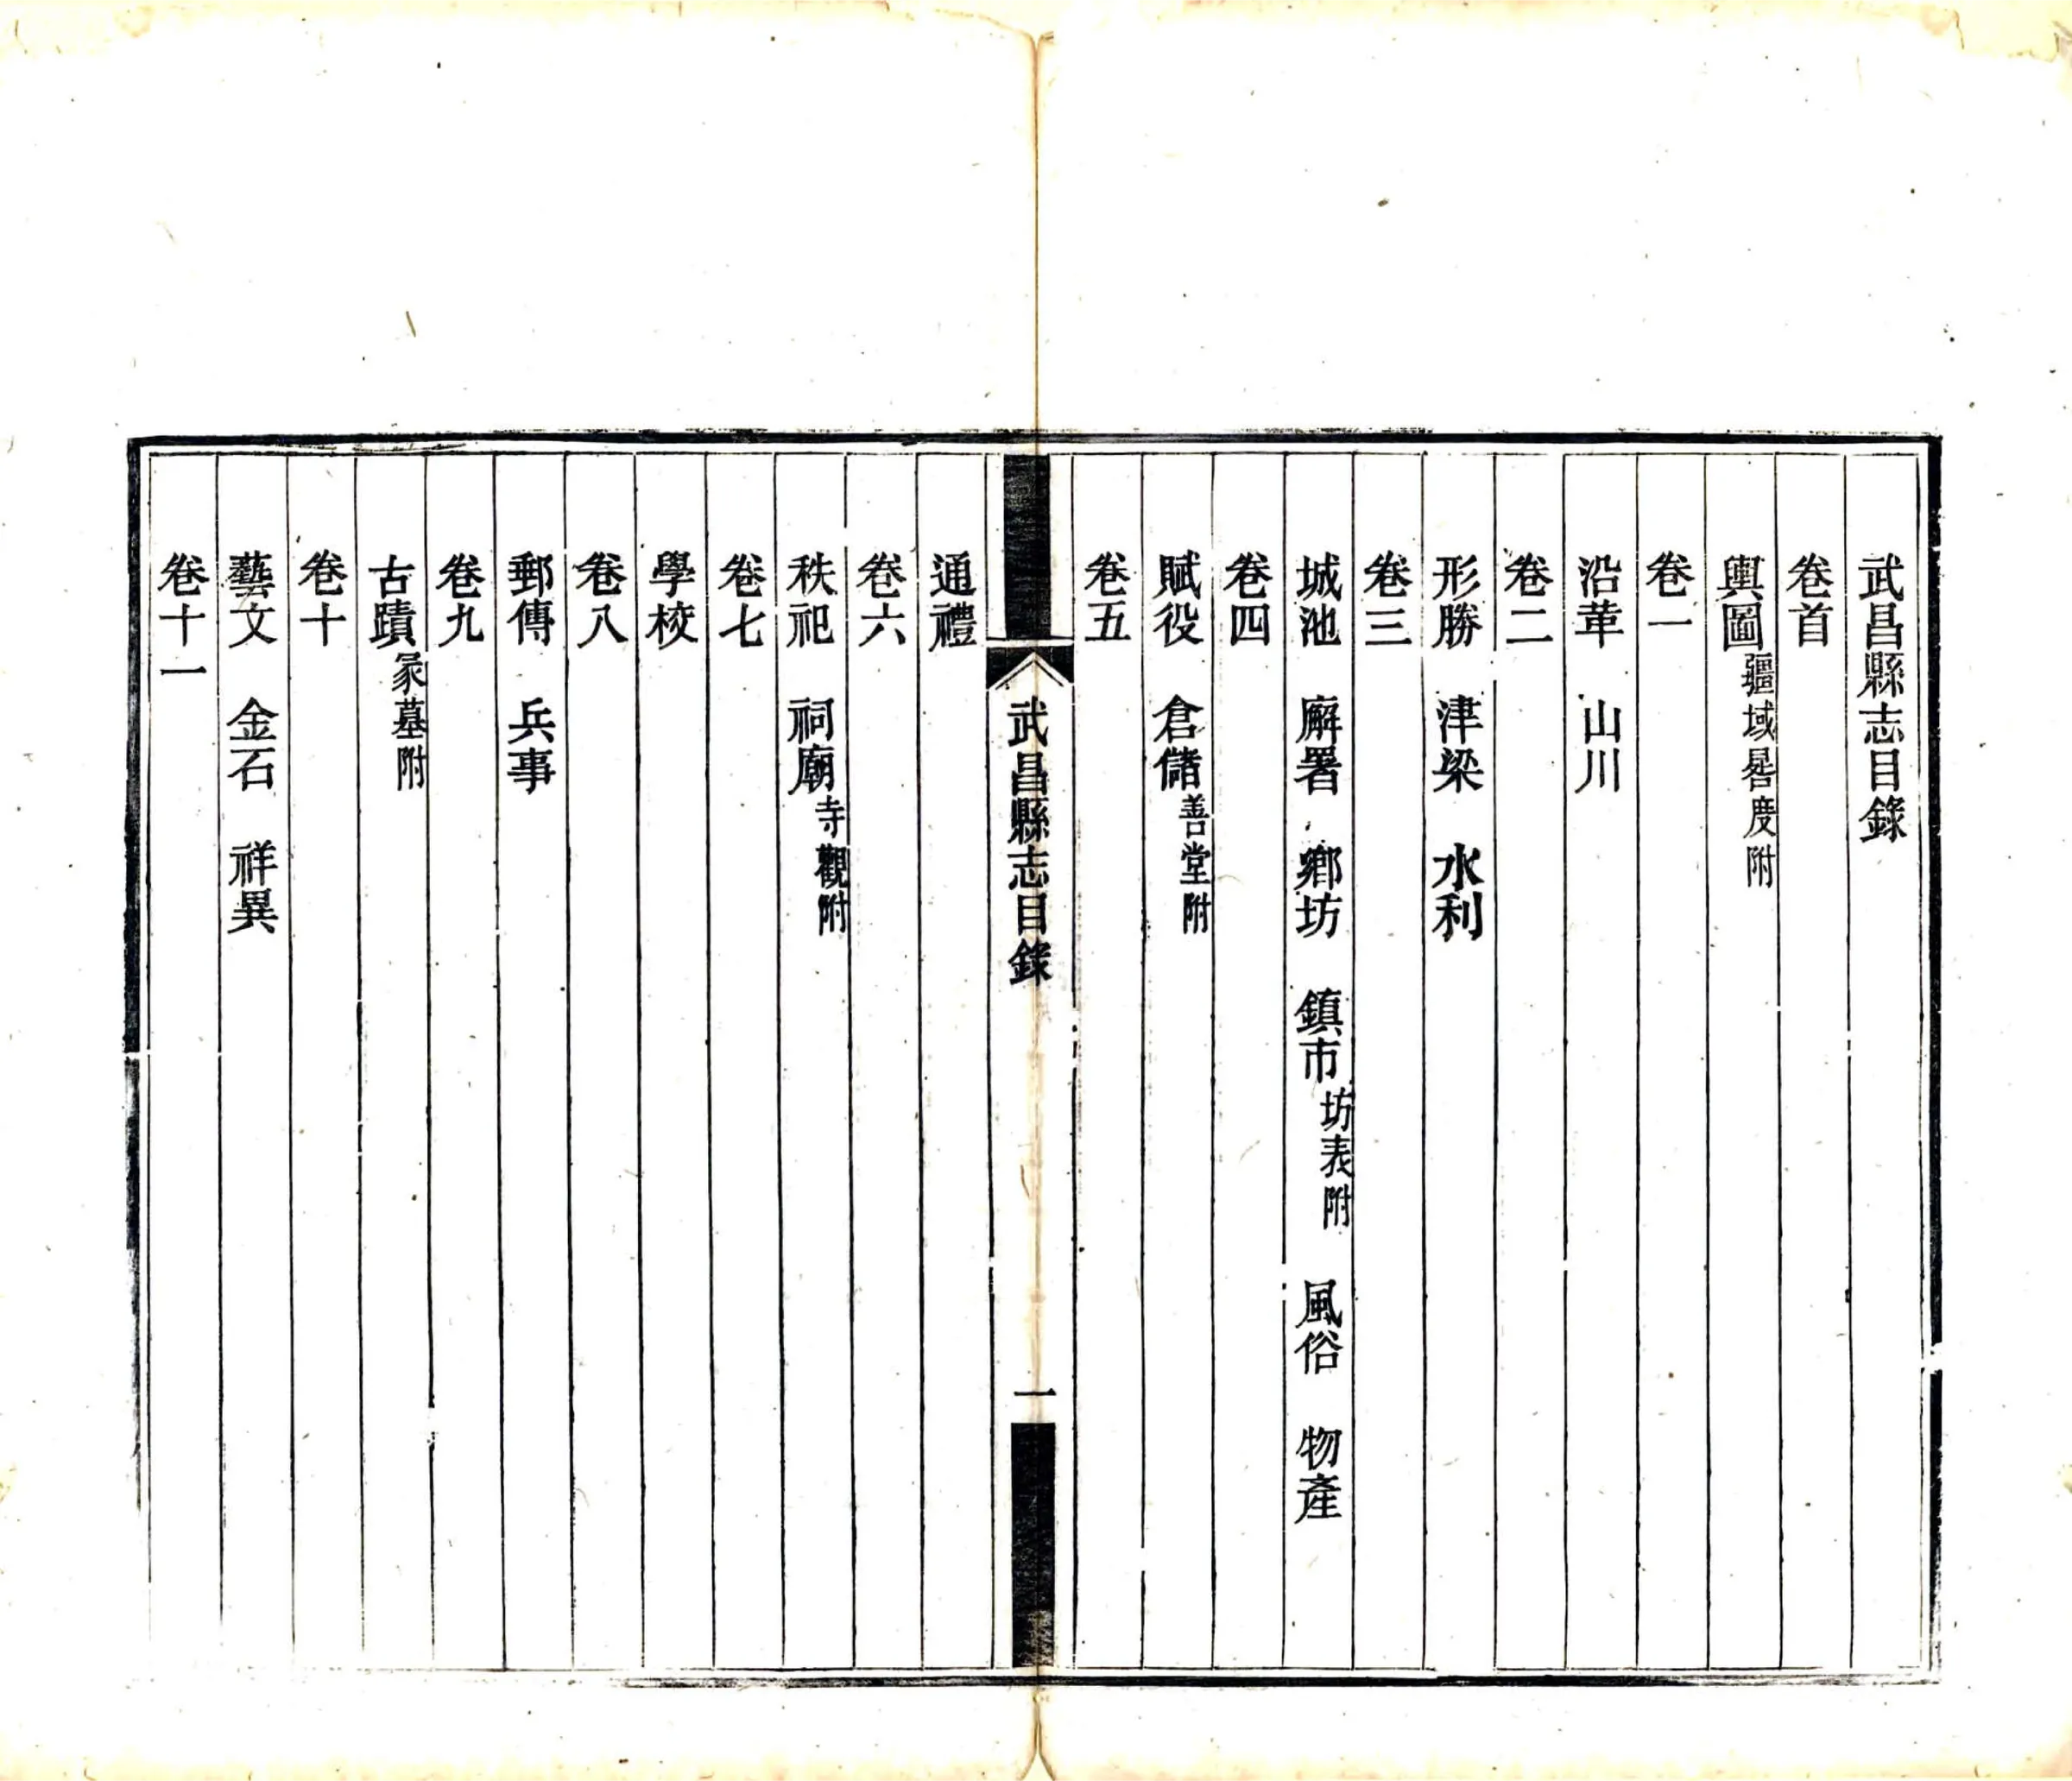 武昌縣志目錄
卷首
輿圖疆域晷度附
卷一
沿革　山川
卷二
形勝　津梁　水利
卷三
城池　廨署　鄉坊　鎮市坊表附　風俗　物產
卷四
賦役　倉儲善堂附
卷五
武昌縣志目錄　一
通禮
卷六
秩祀　祠廟寺觀附
卷七
學校
卷八
郵傳　兵事
卷九
古蹟冢墓附
卷十
藝文　金石　祥異
卷十一